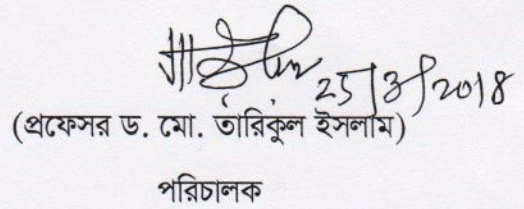 25/3/2018
(প্রফেসর ড. মো. তারিকুল ইসলাম)
পরিচালক